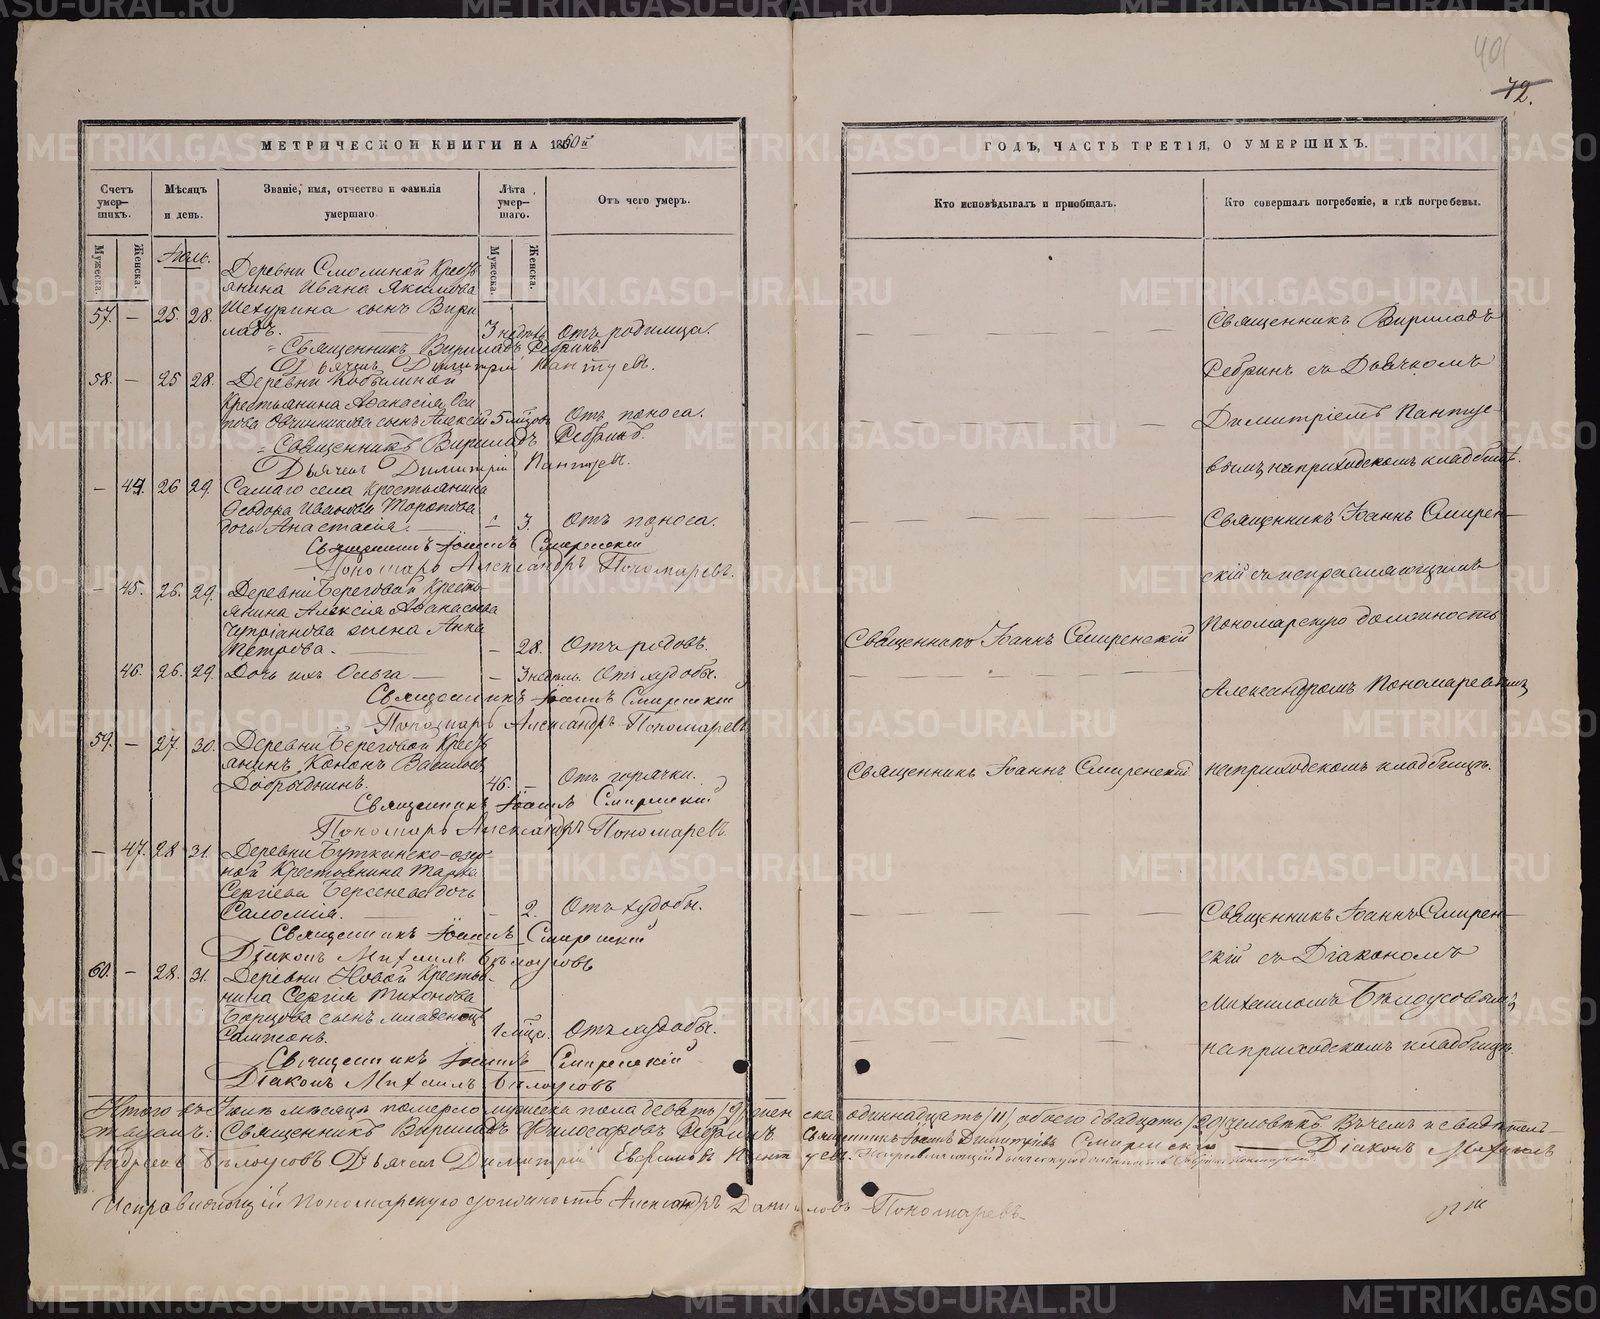 401
72.
МЕТРИЧЕСКОЙ КНИГИ НА 1860й
Счетъ умер-шихъ.
Мѣсяцъ и день.
Званіе, имя, отчество и фамилія умершаго
Лѣта умер-шаго.
Отъ чего умеръ.
Мужеска.
Женска.
Мужеска.
Женска.
Іюль.
Деревни Смолиной Кресть
янина Ивана Якимова
57. — 25. 28. сынъ Вири
ладъ. 3 недѣль Отъ родимца.
Священникъ Вириладъ Ребринъ.
Дьячекъ Димитрій Пантуевъ.
58. — 25 28. Деревни Кобылиной
Крестьянина Аѳанасія Оси
пова Овчинникова сынъ Алексій 5 мѣцовъ Отъ поноса.
Священникъ Вириладъ Ребринъ.
Дьячекъ Димитрій Пантуевъ.
— 44. 26 29. Самаго села Крестьянина
Ѳеодора Иванова Торопова
дочь Анастасія. — 3. Отъ поноса.
Священникъ Іоаннъ Смиренскій
Пономарь Александръ Пономаревъ.
— 45. 26. 29. Деревни Береговой Кресть
янина Алексія Аѳанасьева
Чупріанова жена Анна
Петрова. — 28. Отъ родовъ.
46. 26. 29. Дочь ихъ Ольга — 3 недѣль. Отъ худобы.
Священникъ Іоаннъ Смиренскій
Пономарь Александръ Пономаревъ
59. — 27. 30. Деревни Береговой Кресть
янинъ Кононъ Вавиловъ
Добрынинъ. 46. — Отъ горячки.
Священникъ Іоаннъ Смиренскій
Пономарь Александръ Пономаревъ.
— 47. 28 31. Деревни Буткинско-озер
ной Крестьянина Марка
Сергіева Берсенева дочь
Саломія. — 2. Отъ худобы.
Священникъ Іоаннъ Смиренскій
Діаконъ Михаилъ Бѣлоусовъ
60. — 28. 31. Деревни Новой Крестья
нина Сергія Тихонова
Борцова сынъ младенецъ
Сампсонъ. 1 мѣца. Отъ худобы.
Священникъ Іоаннъ Смиренскій
Діаконъ Михаилъ Бѣлоусовъ
ГОДЪ, ЧАСТЬ ТРЕТІЯ, О УМЕРШИХЪ.
Кто исповѣдывалъ и пріобщалъ.
Кто совершалъ погребеніе, и гдѣ погребены.
Священникъ Вириладъ
Ребринъ съ Дьячкомъ
Димитріемъ Пантуе-
вымъ, на приходскомъ кладбищѣ.
Священникъ Іоаннъ Смирен-
скій съ исправляющимъ
Священникъ Іоаннъ Смиренскій
Пономарскую должность
Александромъ Пономаревымъ
Священникъ Іоаннъ Смиренскій
на приходскомъ кладбищѣ.
Священникъ Іоаннъ Смирен-
скій съ Діакономъ
Михаиломъ Бѣлоусовымъ,
на приходскомъ кладбищѣ.
Итого въ Іюлѣ мѣсяцѣ померло мужеска пола девять /9/ женска одиннадцать /11/, обоего двадцать /20/ человѣкъ. Въ чемъ и свидѣтель-
ствуемъ: Священникъ Вириладъ Ребринъ Священникъ Іоаннъ Димитріевъ Смиренскій Діаконъ Михаилъ
Андреевъ Бѣлоусовъ Дьячекъ Димитрій Пантуевъ.
Исправляющій Пономарскую должность Александръ Даниловъ Пономаревъ
METRIKI.GASO-URAL.RU